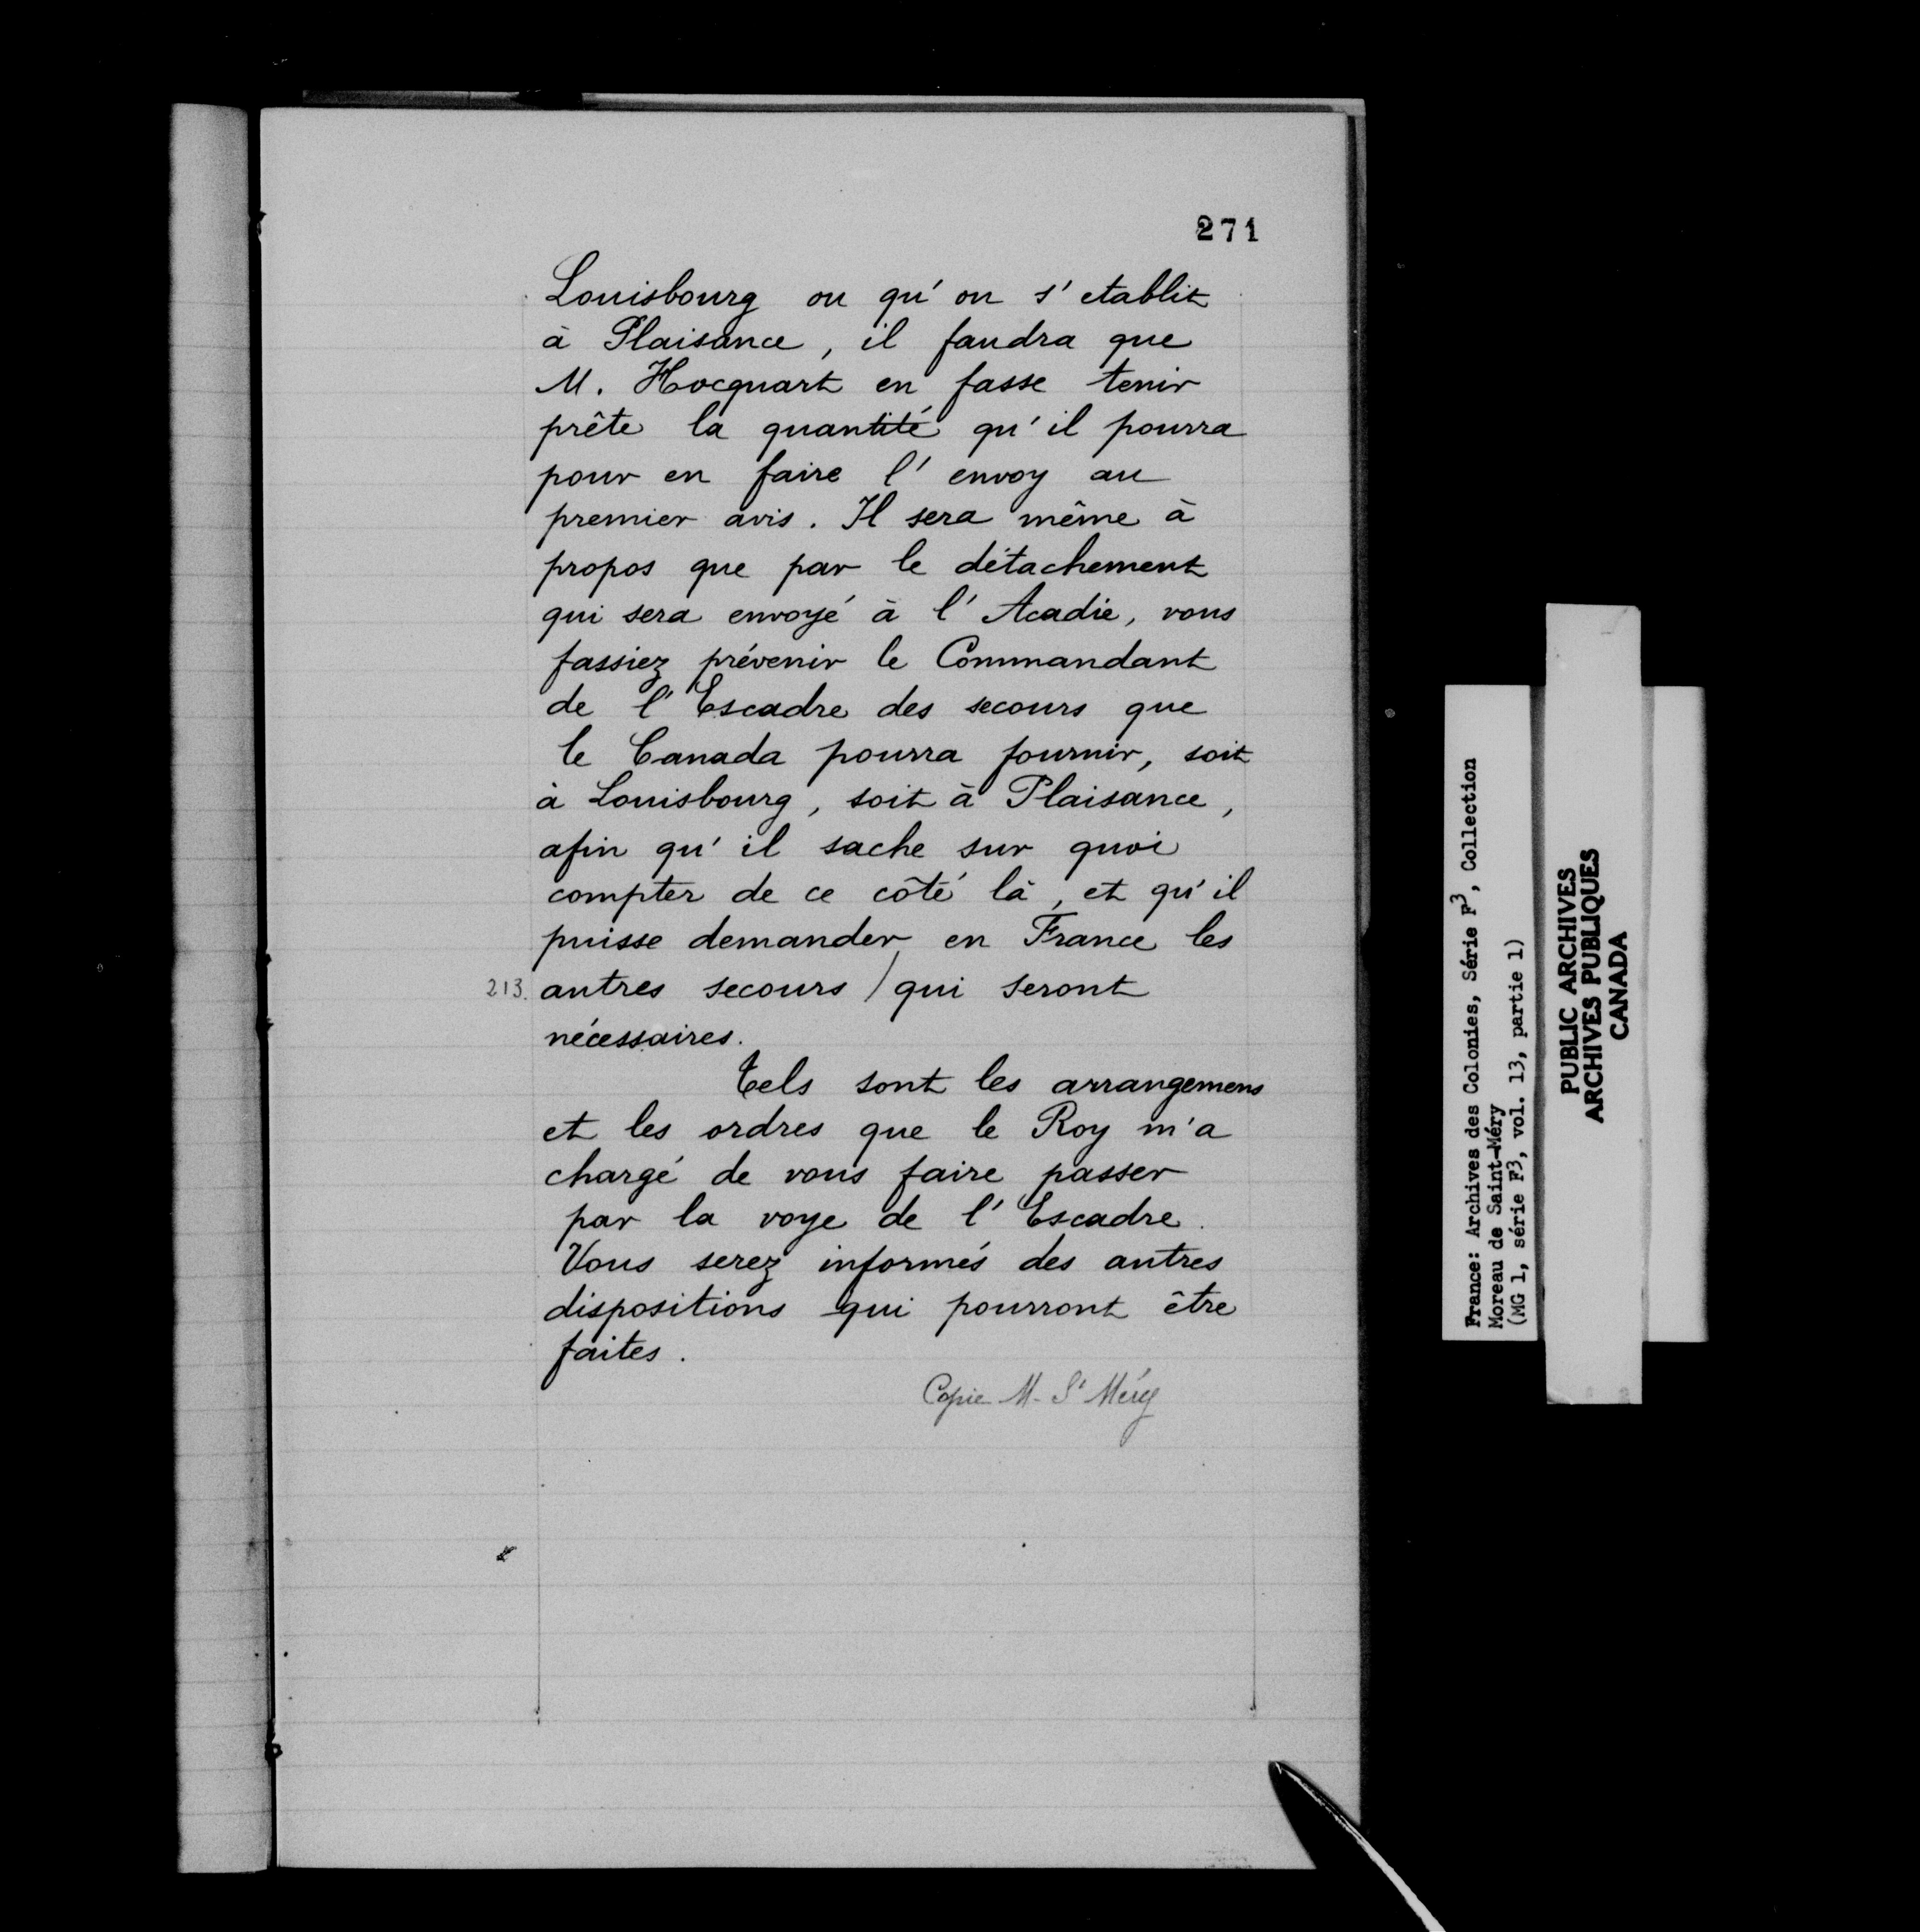 271
Louisbourg ou qu'on s'etablit
à Plaisance, il faudra que
M. Hocquart en fasse tenir
prête la quantité qu'il pourra
pour en faire l'envoy au
premier avis. Il sera même à
propos que par le détachement
qui sera envoyé à l'Acadie, vous
fassiez prévenir le Commandant
de l'Escadre des secours que
le Canada pourra fournir, soit
à Louisbourg, soit à Plaisance,
afin qu'il sache sur quoi
compter de ce côté là, et qu'il
puisse demander en France les
213. autres secours / qui seront
nécessaires.
Tels sont les arrangemens
et les ordres que le Roy m'a
chargé de vous faire passer
par la voye de l'Escadre.
Vous serez informés des autres
dispositions qui pourront être
faites.
Copie M. St Méry
France: Archives des Colonies, Série F3, Collection
Moreau de Saint-Méry
(MG 1, série F3, vol. 13, partie 1)
PUBLIC ARCHIVES
ARCHIVES PUBLIQUES
CANADA